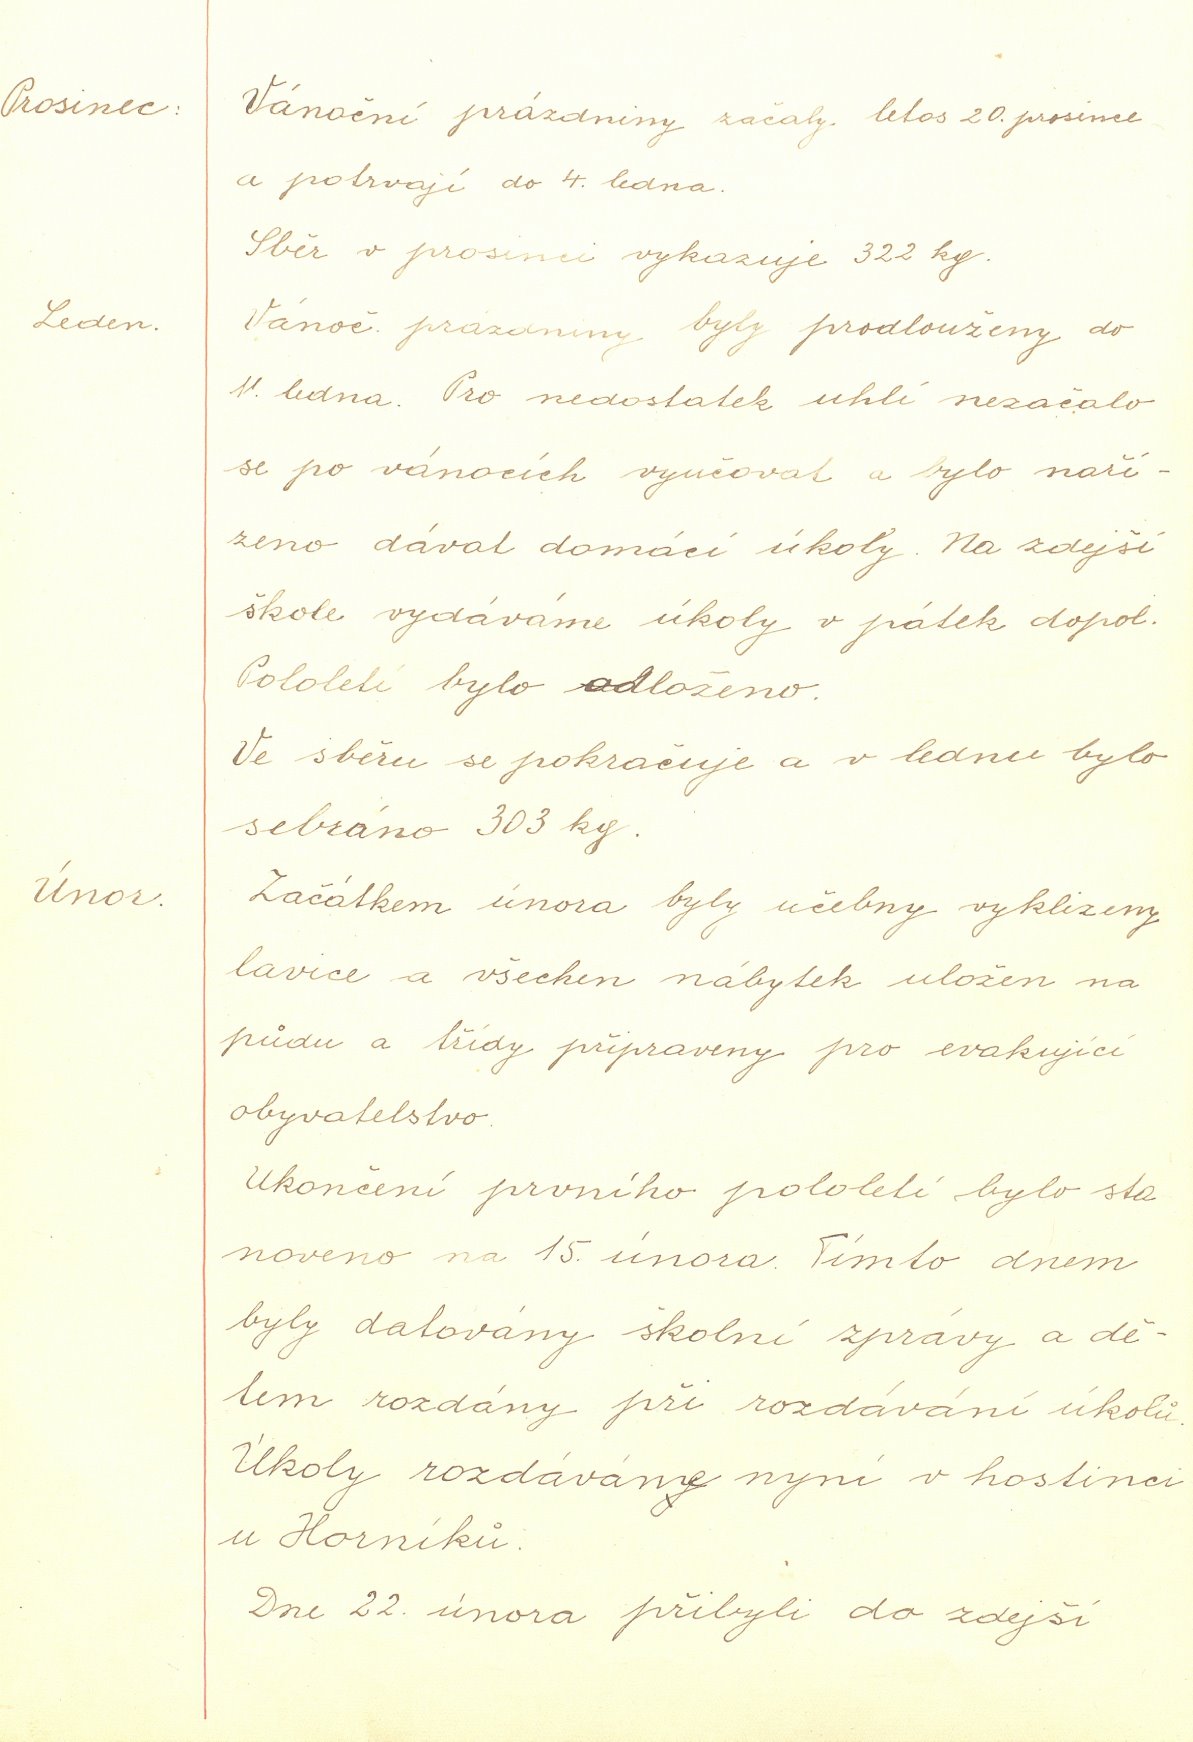 Prosinec: Vánoční prázdniny začaly letos 20. prosince
a potrvají do 4. ledna.
Sběr v prosinci vykazuje 322 kg.
Leden. Vánoč. prázdniny byly prodlouženy do
11. ledna. Pro nedostatek uhlí nezačalo
se po vánocích vyučovat a bylo naří-
zeno dávat domácí úkoly. Na zdejší
škole vydáváme úkoly v pátek dopol.
Pololetí bylo odloženo.
Ve sběru se pokračuje a v lednu bylo
sebráno 303 kg.
Únor. Začátkem února byly učebny vyklizeny
lavice a všechen nábytek uložen na
půdu a třídy připraveny pro evakující
obyvatelstvo.
Ukončení prvního pololetí bylo sta
noveno na 15. února. Tímto dnem
byly datovány školní zprávy a dě-
tem rozdány při rozdávání úkolů.
Úkoly rozdáváme nyní v hostinci
u Horníků.
Dne 22. února přibyli do zdejší